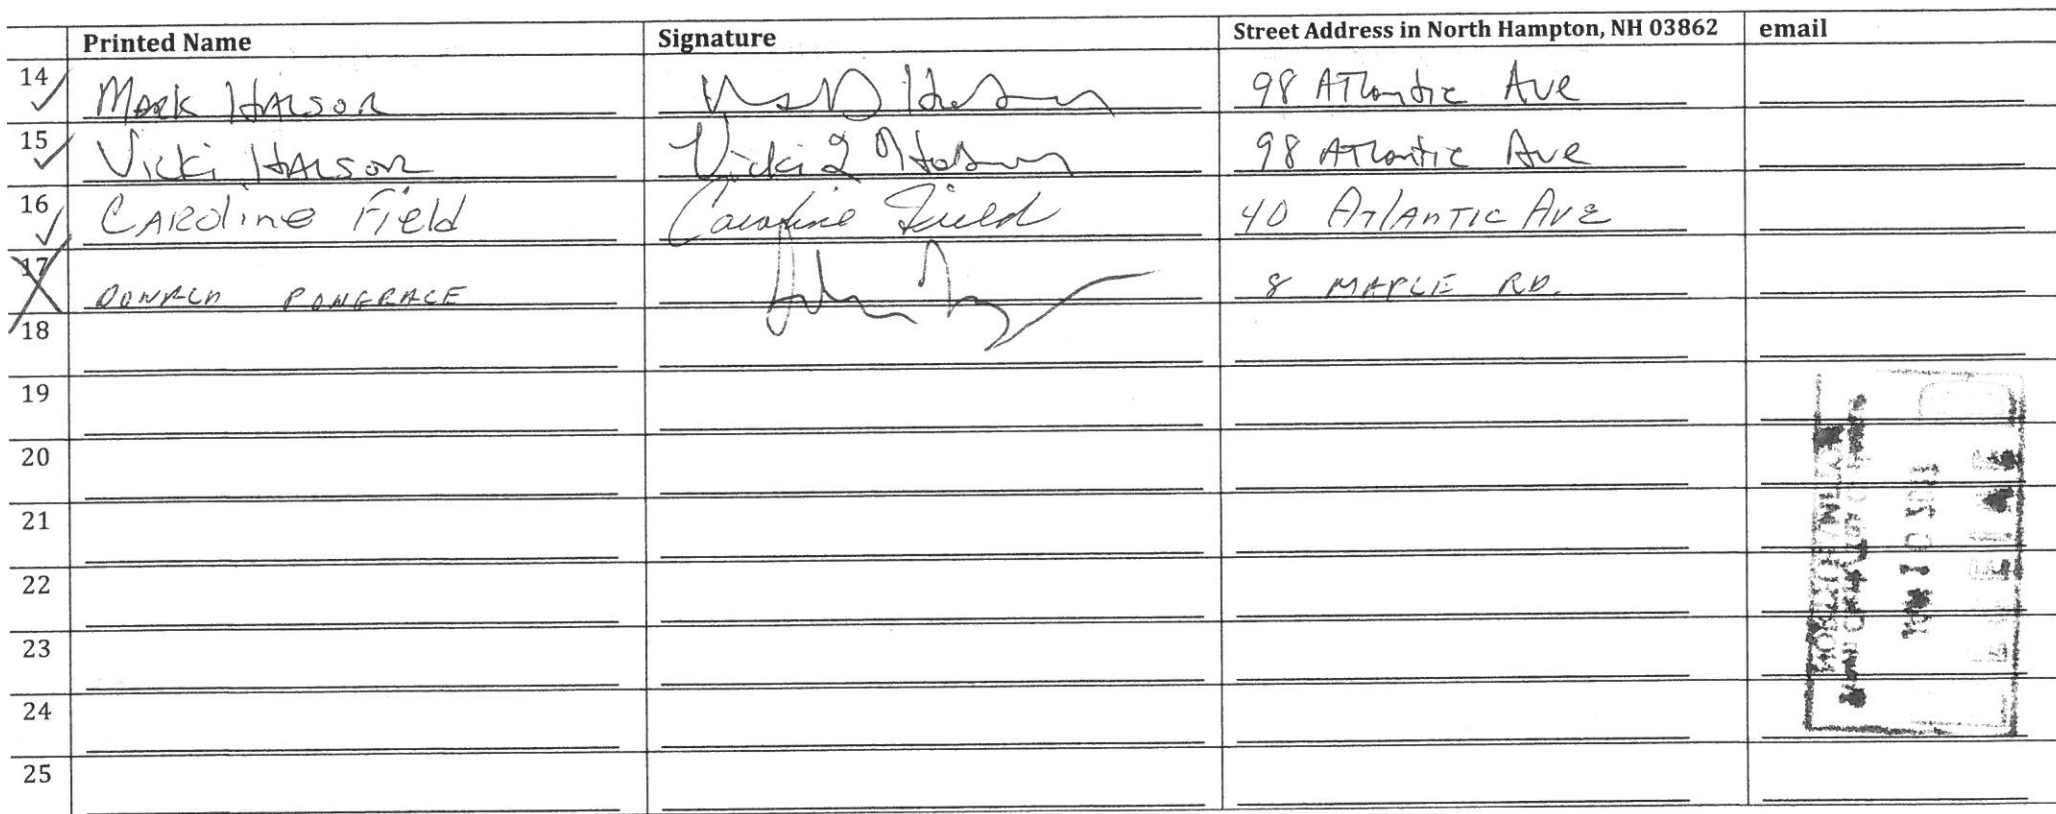 Printed Name Signature Street Address in North Hampton, NH 03862 email
14 Mark Halson 98 Atlantic Ave
15 Vicki Halson Vicki 98 Atlantic Ave
16 Caroline Field Caroline Field 40 Atlantic Ave
17 DONALD PONGRACE 8 MAPLE RD.
18
19
20
21
22
23
24
25